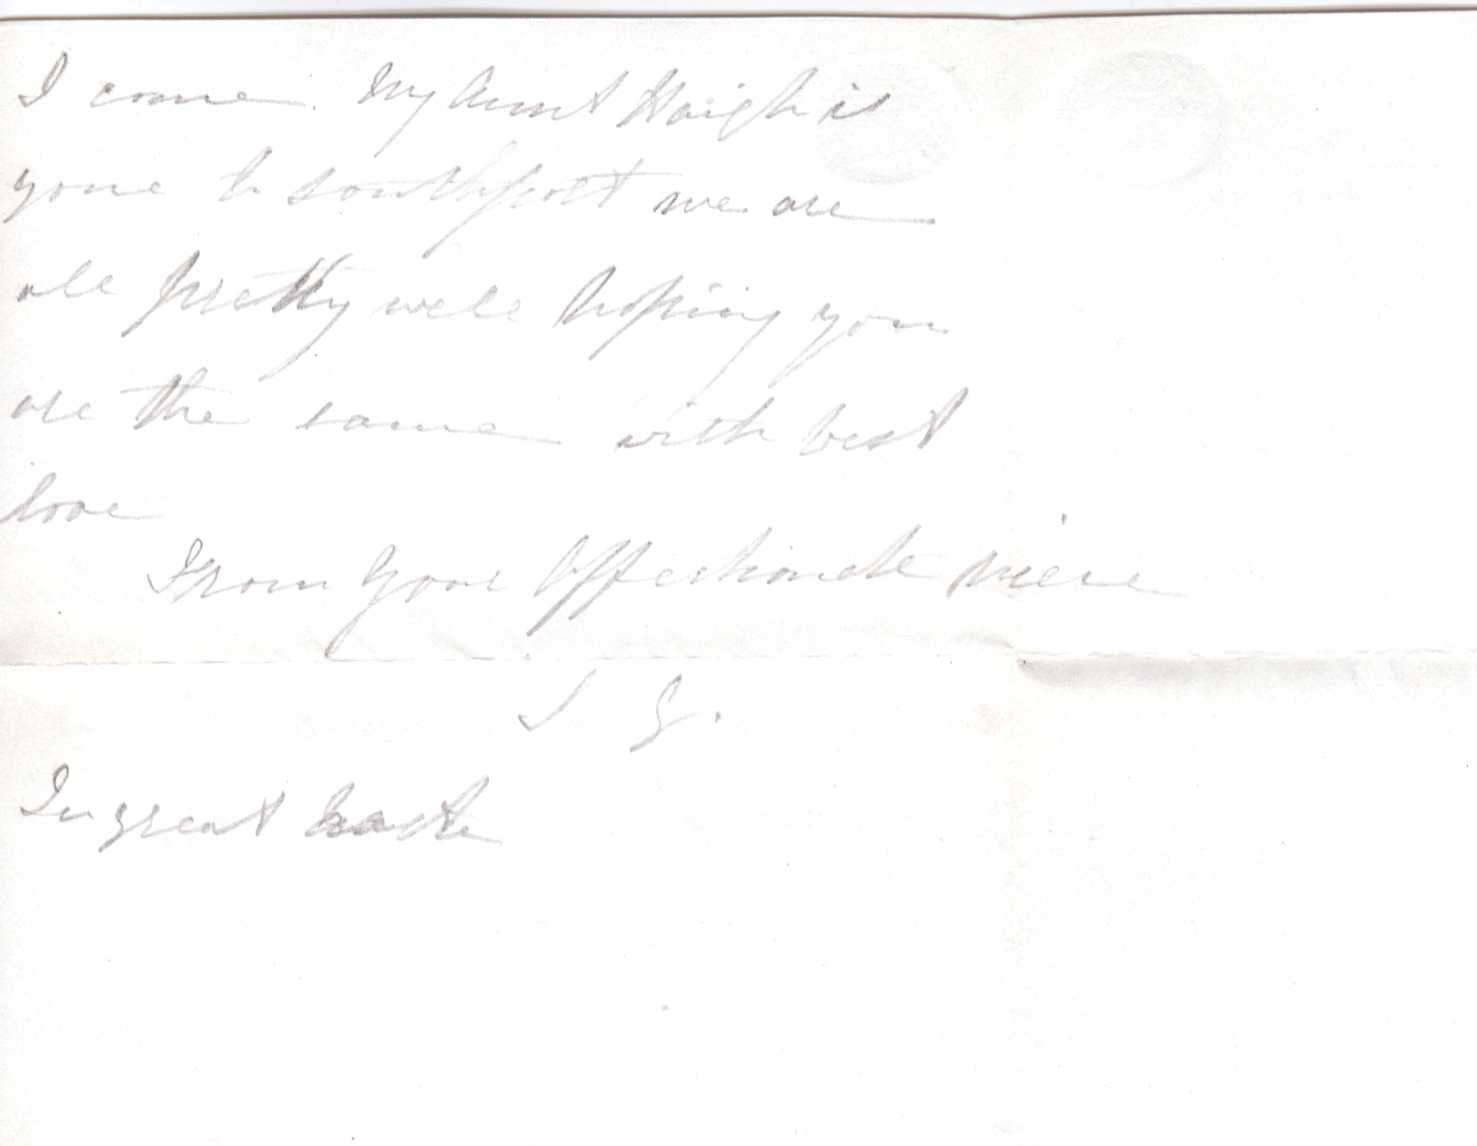 I come. My Aunt Haigh is
gone to Southport we are
all pretty well hoping you
are the same with best
love
From Your Affectionate niece
J G.
In great haste